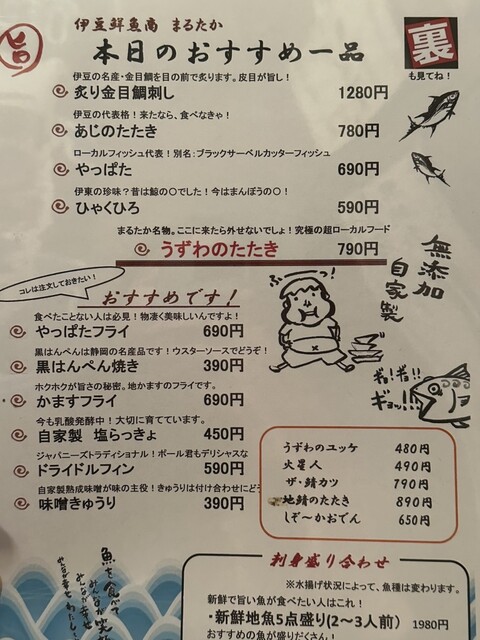 旨
伊豆鮮魚商 まるたか
本日のおすすめ一品
裏
も見てね！
伊豆の名産・金目鯛を目の前で炙ります。皮目が旨し！
炙り金目鯛刺し 1280円
伊豆の代表格！来たなら、食べなきゃ！
あじのたたき 780円
ローカルフィッシュ代表！別名：ブラックサーベルカッターフィッシュ
やっぱた 690円
伊東の珍味？昔は鯨の〇でした！今はまんぼうの〇！
ひゃくひろ 590円
まるたか名物。ここに来たら外せないでしょ！究極の超ローカルフード
うずわのたたき 790円
無添加
自家製
コレは注文しておきたい！
おすすめです！
食べたことない人は必見！物凄く美味しいんですよ！
やっぱたフライ 690円
黒はんぺんは静岡の名産品です！ウスターソースでどうぞ！
黒はんぺん焼き 390円
ホクホクが旨さの秘密。地かますのフライです。
かますフライ 690円
今も乳酸発酵中！大切に育てています。
自家製 塩らっきょ 450円
ジャパニーズトラディショナル！ポール君もデリシャスな
ドライドルフィン 590円
自家製熟成味噌が味の主役！きゅうりは付け合わせにどう
味噌きゅうり 390円
ふぅ〜!
ギョ!ギョ!!
ギョッ!!
うずわのユッケ 480円
火星人 490円
ザ・鯖カツ 790円
地鯖のたたき 890円
しぞ〜かおでん 650円
魚を食べて
みんなが笑顔
みんなが幸せ
刺身盛り合わせ
※水揚げ状況によって、魚種は変わります。
新鮮で旨い魚が食べたい人はこれ！
・新鮮地魚5点盛り(2〜3人前) 1980円
おすすめの魚が盛りだくさん！